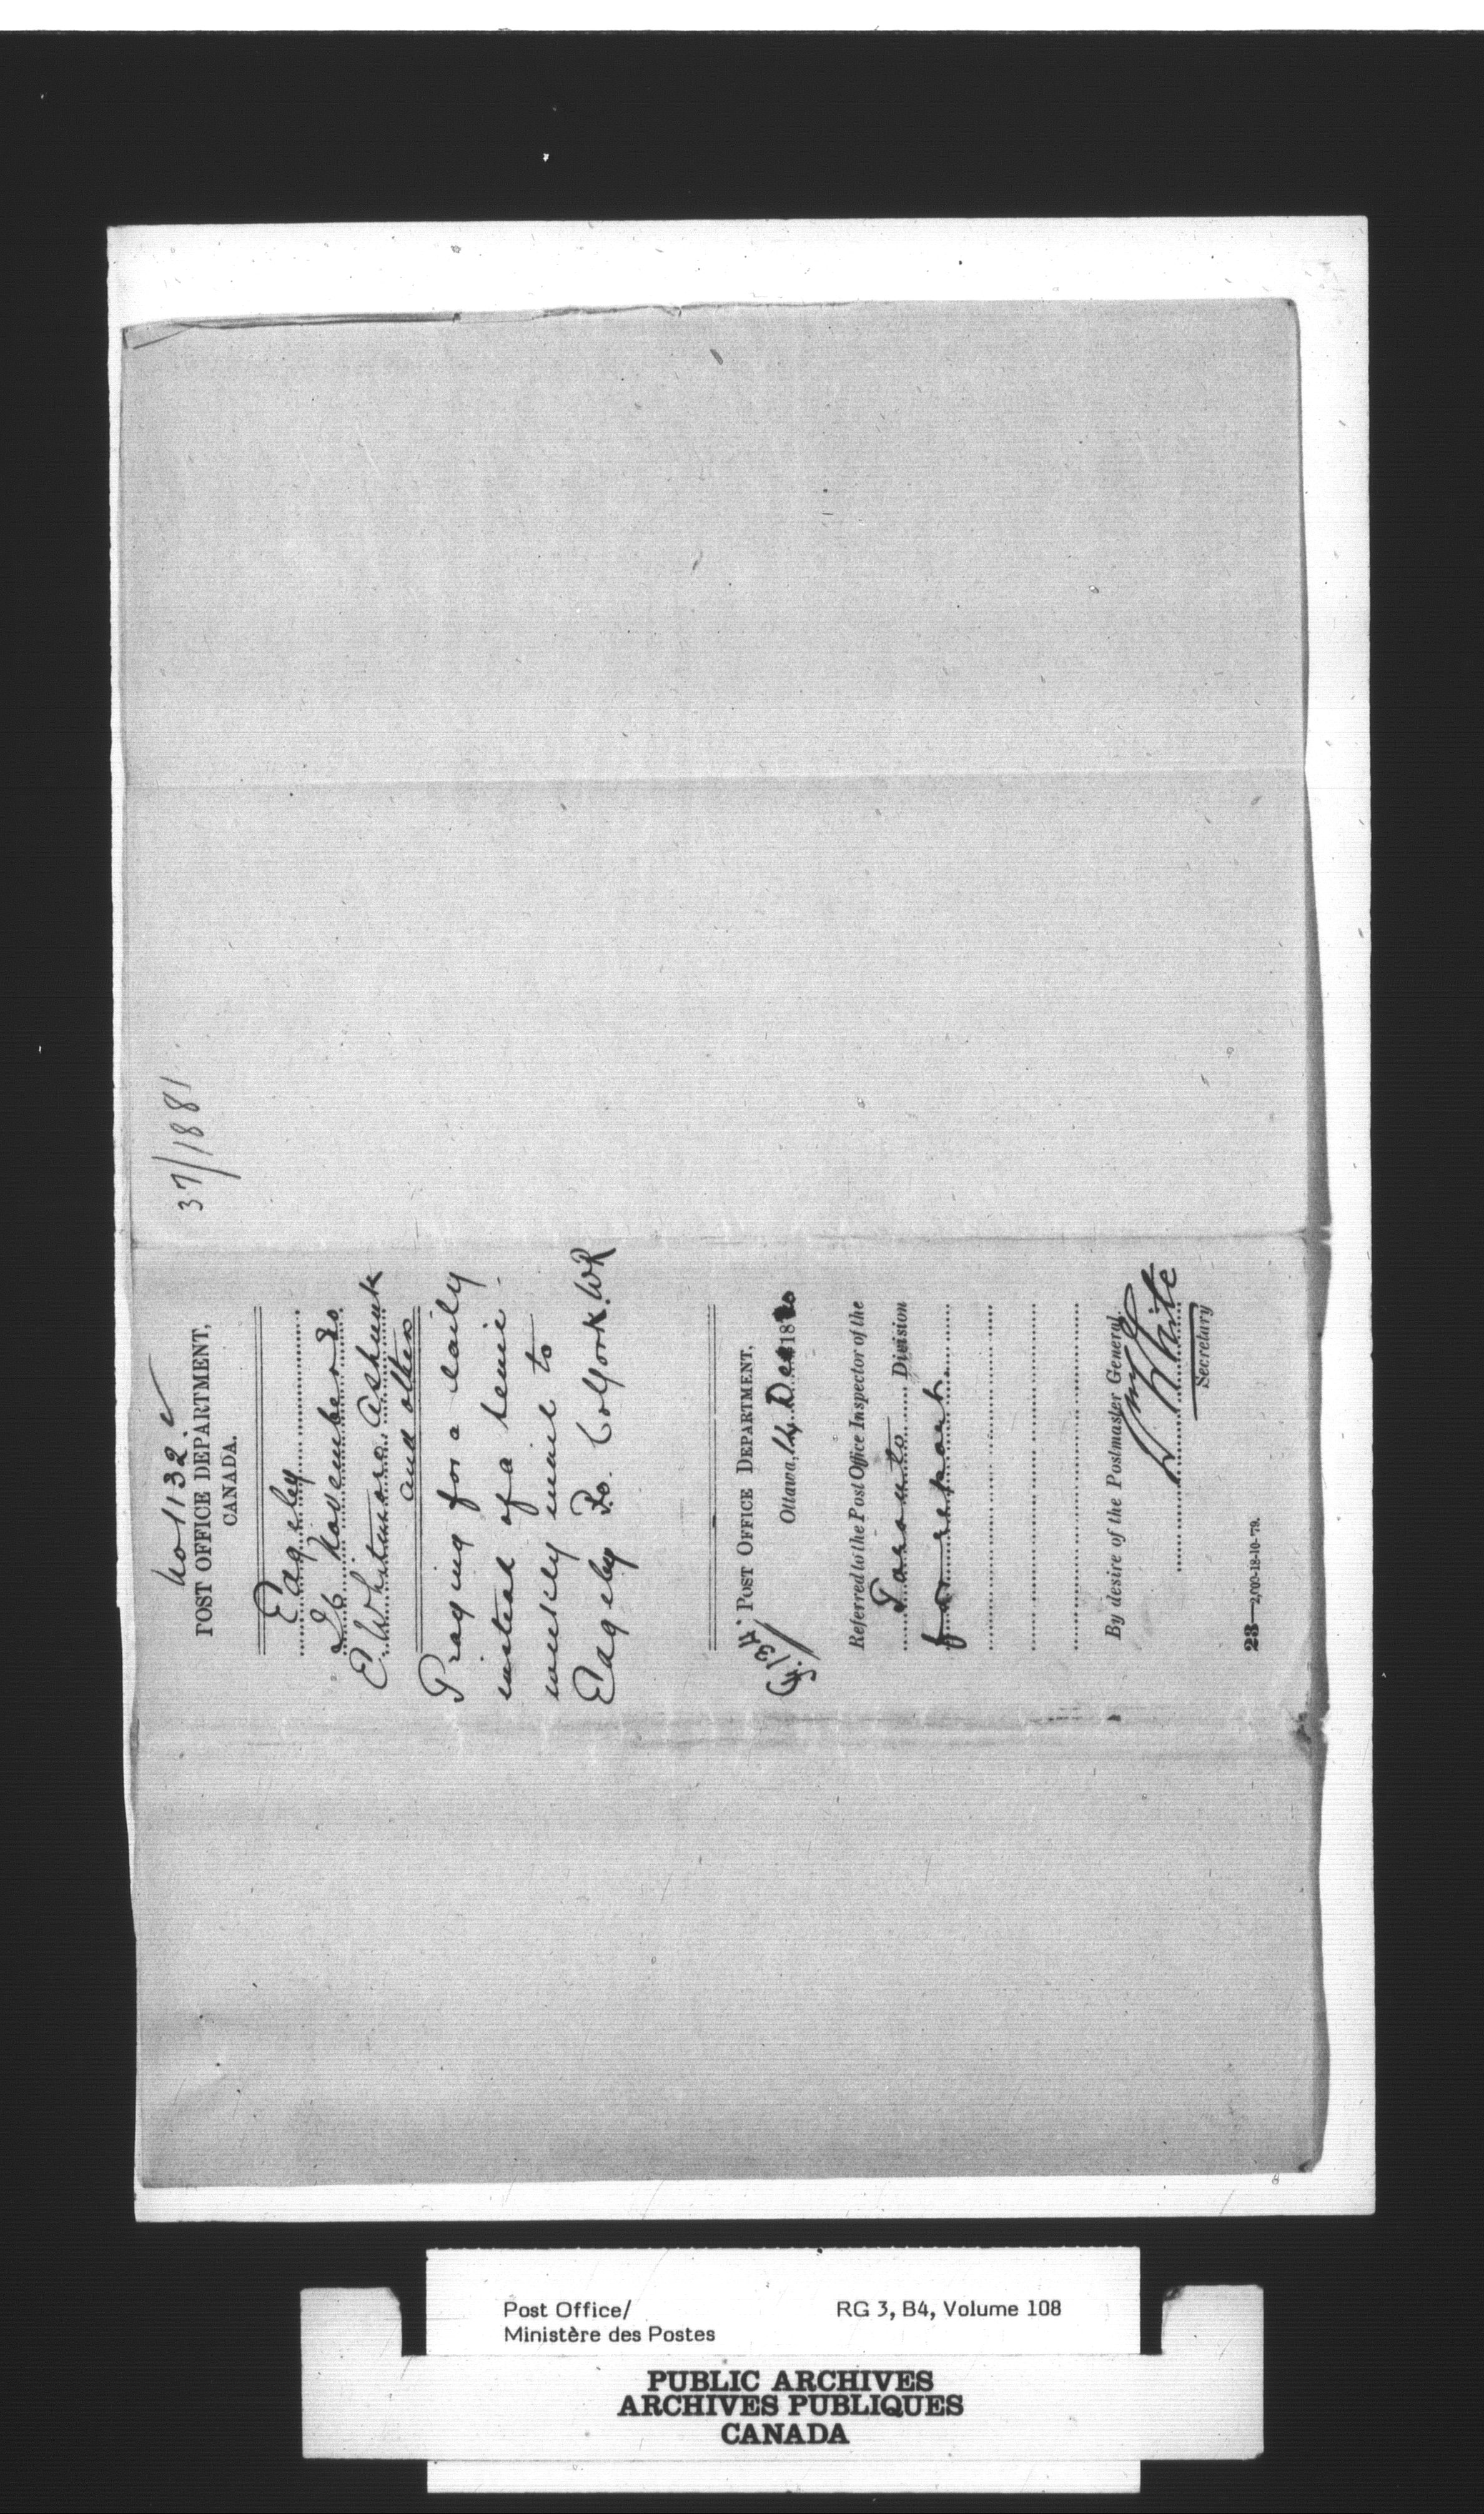 37/1881
No 1132
POST OFFICE DEPARTMENT,
CANADA.
Edgeley
26 November 80
E Whitmore Asst
and others
Praying for a daily
instead of a semi-
weekly mail to
Edgeley Po. Co York. W.R
G. 134
POST OFFICE DEPARTMENT,
Ottawa, 14 Dec 1880
Referred to the Post Office Inspector of the
Toronto Division
for report
By desire of the Postmaster General.
W White
Secretary
23—2,000-18-10-79.
Post Office/
Ministère des Postes
RG 3, B4, Volume 108
PUBLIC ARCHIVES
ARCHIVES PUBLIQUES
CANADA